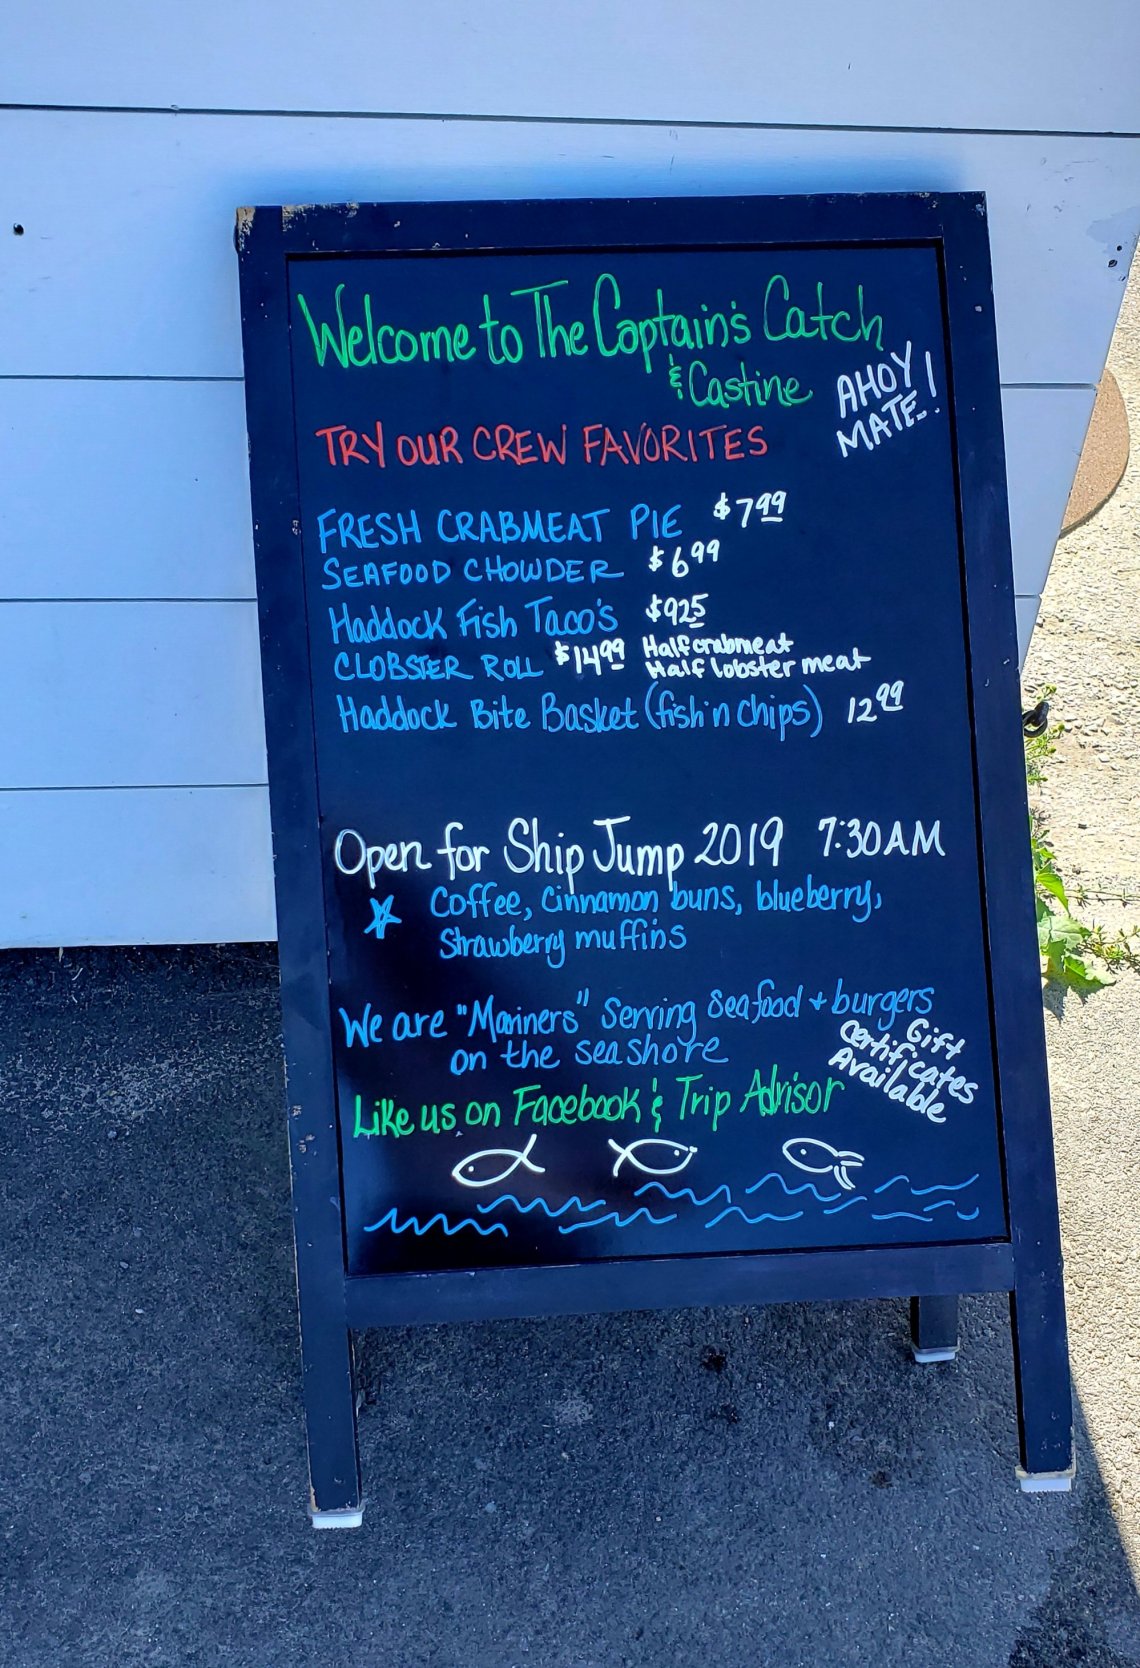 Welcome to The Captain's Catch
& Castine
AHOY
MATE!
TRY OUR CREW FAVORITES
FRESH CRABMEAT PIE $7.99
SEAFOOD CHOWDER $6.99
Haddock Fish Taco's $9.25
CLOBSTER ROLL $14.99 Half crabmeat
Half lobster meat
Haddock Bite Basket (fish'n chips) 12.99
Open for Ship Jump 2019 7:30AM
Coffee, cinnamon buns, blueberry,
Strawberry muffins
We are "Mariners" Serving Seafood + burgers
on the seashore
Gift
Certificates
Available
Like us on Facebook & Trip Advisor